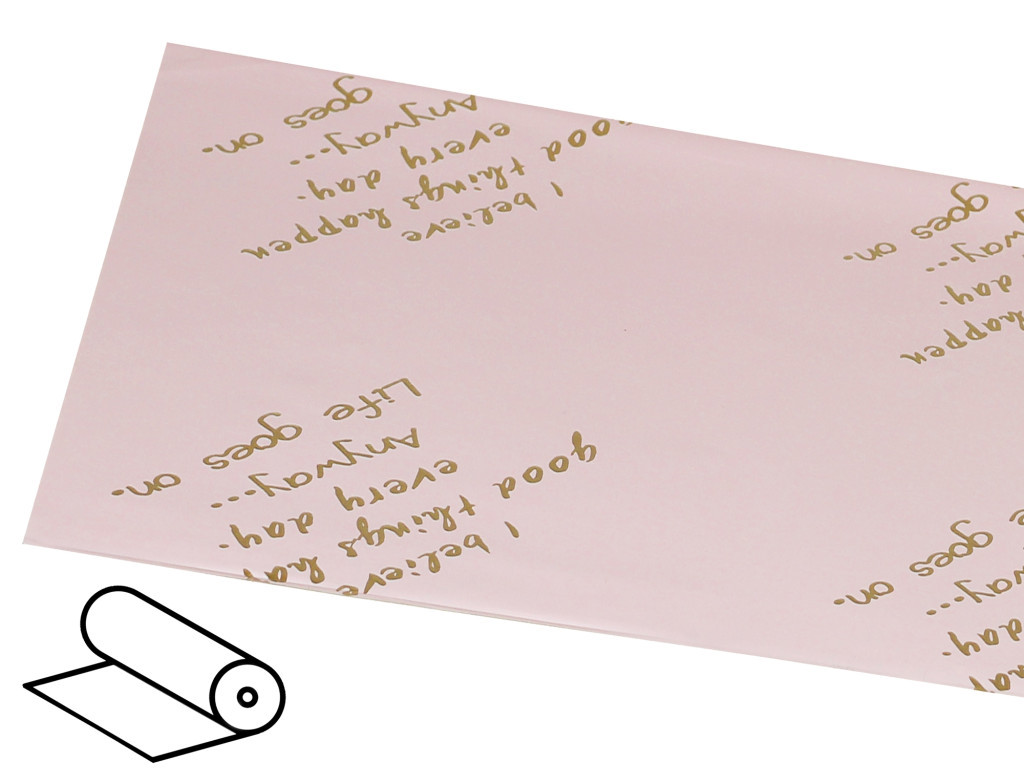 I believe
good things happen
every day.
Anyway...
goes on.
happen
day.
yway...
goes on.
I believe
good things hap
every day.
Anyway...
Life goes on.
hap
day.
way...
goes on.